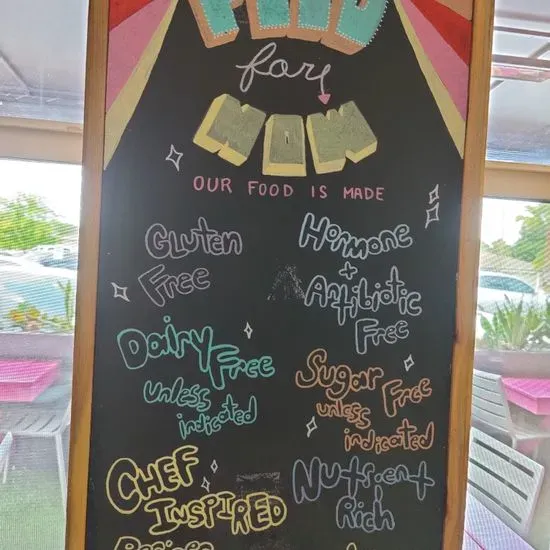 FOOD
for
NOW
OUR FOOD IS MADE
Gluten
Free
Hormone
+
Antibiotic
Free
Dairy Free
unless
indicated
Sugar Free
unless
indicated
CHEF
INSPIRED
Recipes
Nutrient
Rich